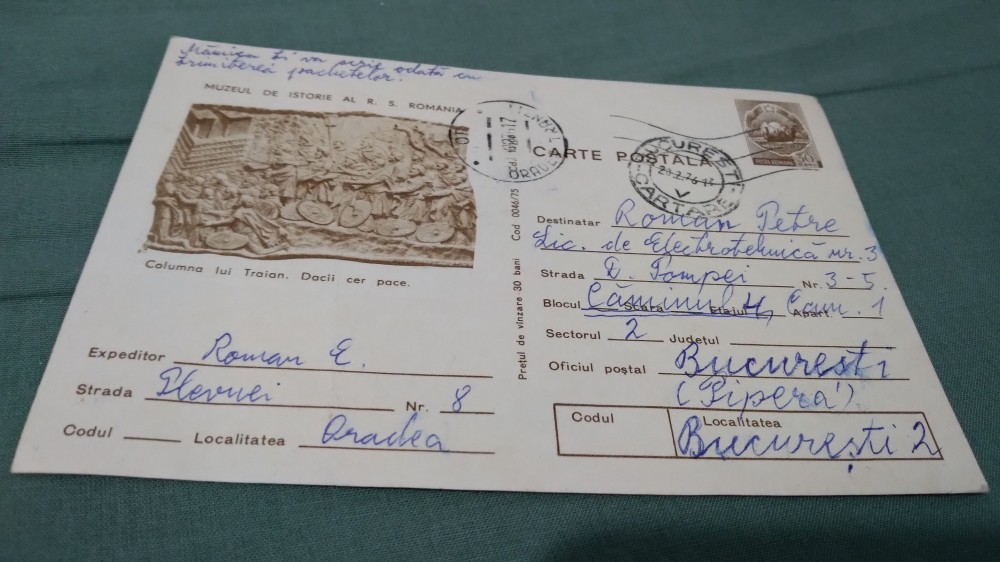 Mămica îți va scrie odată cu
trimiterea pachetelor.
MUZEUL DE ISTORIE AL R. S. ROMÂNIA
Columna lui Traian. Dacii cer pace.
Expeditor Roman E.
Strada Plevnei Nr. 8
Codul Localitatea Oradea
Prețul de vînzare 30 bani Cod 0046/75
ORADEA
CARTE POȘTALĂ
BUCUREȘTI
V
CARTARE
Destinatar Roman Petre
Lic. de Electrotehnică nr. 3
Strada D. Pompei Nr. 3-5.
Blocul Scara Etajul Apart.
Căminul 4, Cam. 1
Sectorul 2 Județul
Oficiul poștal București
(Pipera)
Codul Localitatea
București 2